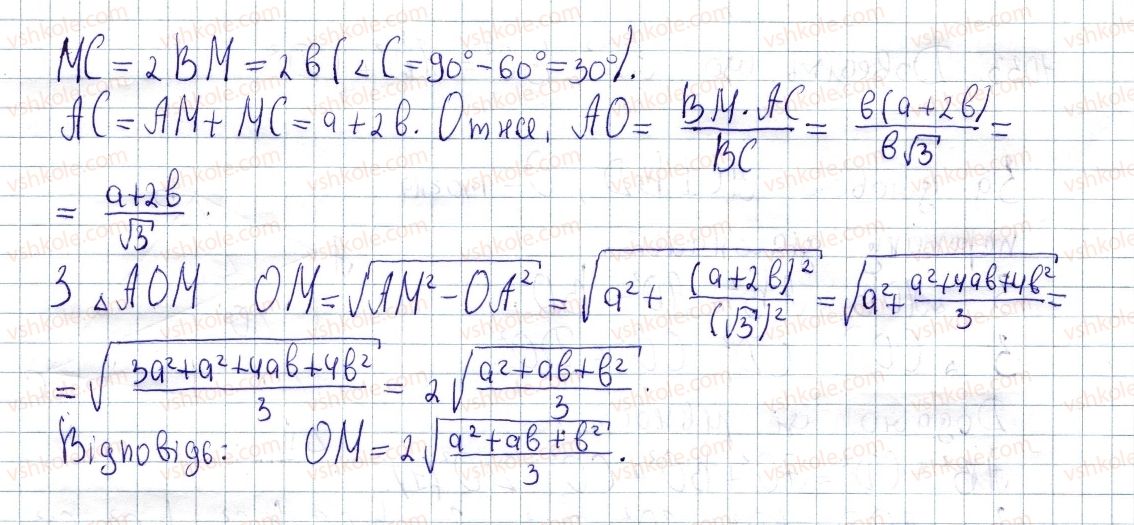 MC = 2BM = 2b (∠C = 90° - 60° = 30°).
AC = AM + MC = a + 2b. Отже, AO = \frac{BM·AC}{BC} = \frac{b(a+2b)}{b√3} =
= \frac{a+2b}{√3}.
З △AOM OM = √(AM² - OA²) = √(a² + \frac{(a+2b)²}{(√3)²}) = √(a² + \frac{a²+4ab+4b²}{3}) =
= √(\frac{3a²+a²+4ab+4b²}{3}) = 2√(\frac{a²+ab+b²}{3}).
Відповідь: OM = 2√(\frac{a²+ab+b²}{3}).